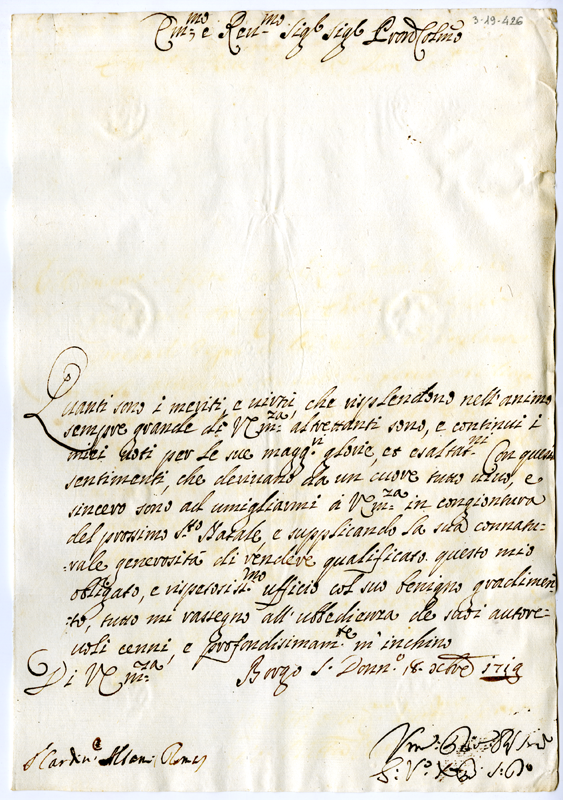 3-19-426
Em:mo e Reu:mo Sig.r Sig.r Pron Colmo
Quanti sono i meriti, e uirtù, che risplendono nell'animo
sempre grande di V. Em:za altrettanti sono, e continui i
miei uoti per le sue magg.ri glorie, et esaltat.ni Con questi
sentimenti, che deriuano da un cuore tutto uiuo, e
sincero sono ad umigliarmi à V. Em:za in congiontura
del prossimo S.to Natale, e supplicando la sua connatu-
-rale generosità di rendere qualificato questo mio
obligato, e rispetosis.mo ufficio col suo benigno gradimen-
-to, tutto mi rassegno all'ubbedienza de suoi autore-
uoli cenni, e profondissimam.te m'inchino
Di V. Em:za
Borgo S. Donn.o 18. Xbre
S. Card.e Roma